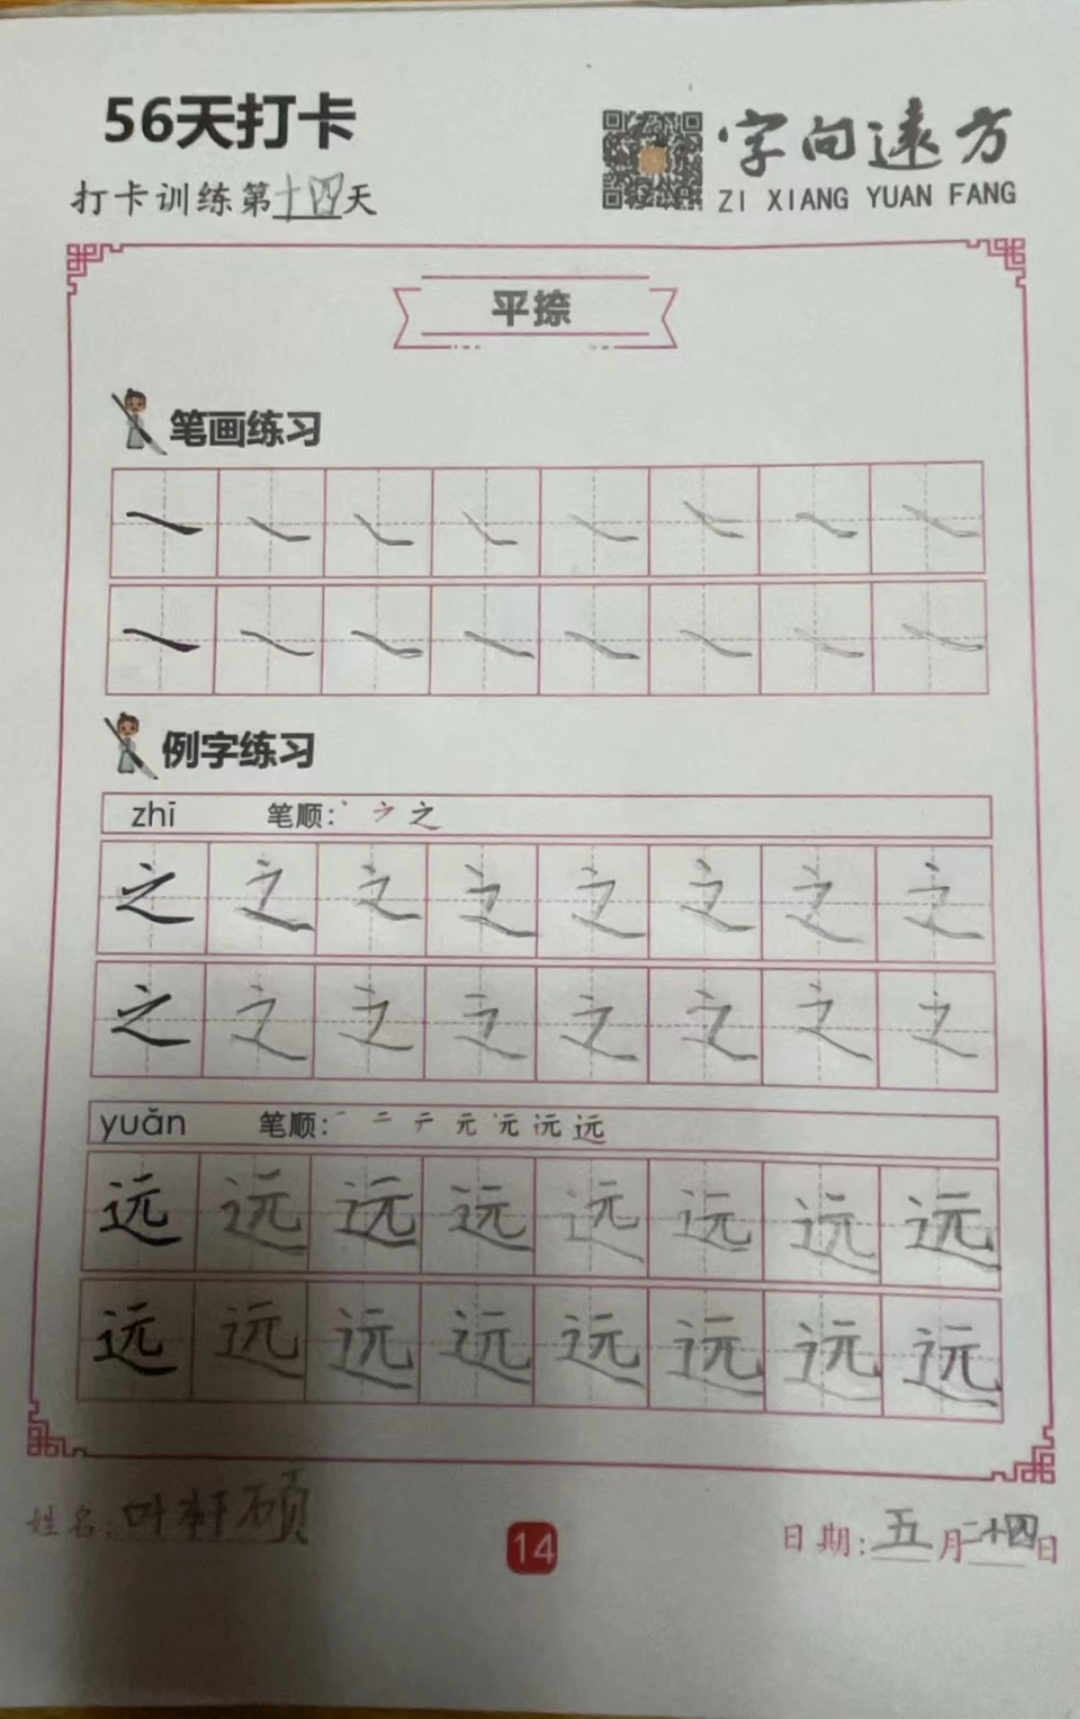 56天打卡
打卡训练第十四天
字向遠方
ZI XIANG YUAN FANG
平捺
笔画练习
例字练习
zhī 笔顺: 之
之 之 之 之 之 之 之 之
之 之 之 之 之 之 之 之
yuǎn 笔顺: 一 二 テ 元 远
远 远 远 远 远 远 远 远
远 远 远 远 远 远 远 远
姓名: 叶轩硕
14
日期: 五月二十四日